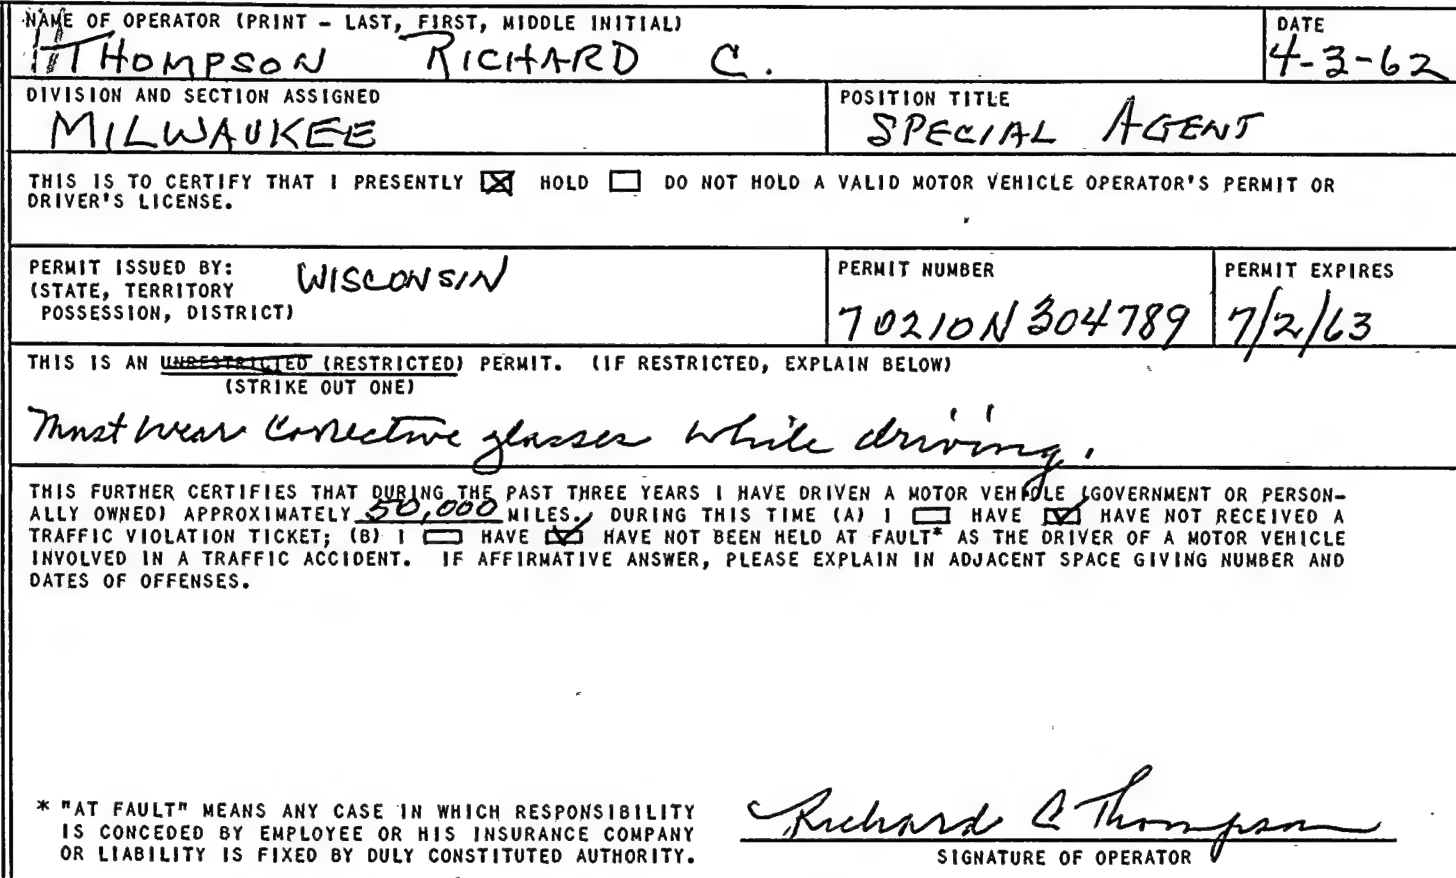 NAME OF OPERATOR (PRINT - LAST, FIRST, MIDDLE INITIAL)
THOMPSON RICHARD C.
DATE
4-3-62
DIVISION AND SECTION ASSIGNED
MILWAUKEE
POSITION TITLE
SPECIAL AGENT
THIS IS TO CERTIFY THAT I PRESENTLY ☒ HOLD ☐ DO NOT HOLD A VALID MOTOR VEHICLE OPERATOR'S PERMIT OR
DRIVER'S LICENSE.
PERMIT ISSUED BY:
(STATE, TERRITORY
POSSESSION, DISTRICT)
WISCONSIN
PERMIT NUMBER
70210N304789
PERMIT EXPIRES
7/2/63
THIS IS AN UNRESTRICTED (RESTRICTED) PERMIT. (IF RESTRICTED, EXPLAIN BELOW)
(STRIKE OUT ONE)
Must wear corrective glasses while driving.
THIS FURTHER CERTIFIES THAT DURING THE PAST THREE YEARS I HAVE DRIVEN A MOTOR VEHICLE (GOVERNMENT OR PERSON-
ALLY OWNED) APPROXIMATELY 50,000 MILES. DURING THIS TIME (A) I ☐ HAVE ☑ HAVE NOT RECEIVED A
TRAFFIC VIOLATION TICKET; (B) I ☐ HAVE ☑ HAVE NOT BEEN HELD AT FAULT* AS THE DRIVER OF A MOTOR VEHICLE
INVOLVED IN A TRAFFIC ACCIDENT. IF AFFIRMATIVE ANSWER, PLEASE EXPLAIN IN ADJACENT SPACE GIVING NUMBER AND
DATES OF OFFENSES.
* "AT FAULT" MEANS ANY CASE IN WHICH RESPONSIBILITY
IS CONCEDED BY EMPLOYEE OR HIS INSURANCE COMPANY
OR LIABILITY IS FIXED BY DULY CONSTITUTED AUTHORITY.
Richard C Thompson
SIGNATURE OF OPERATOR